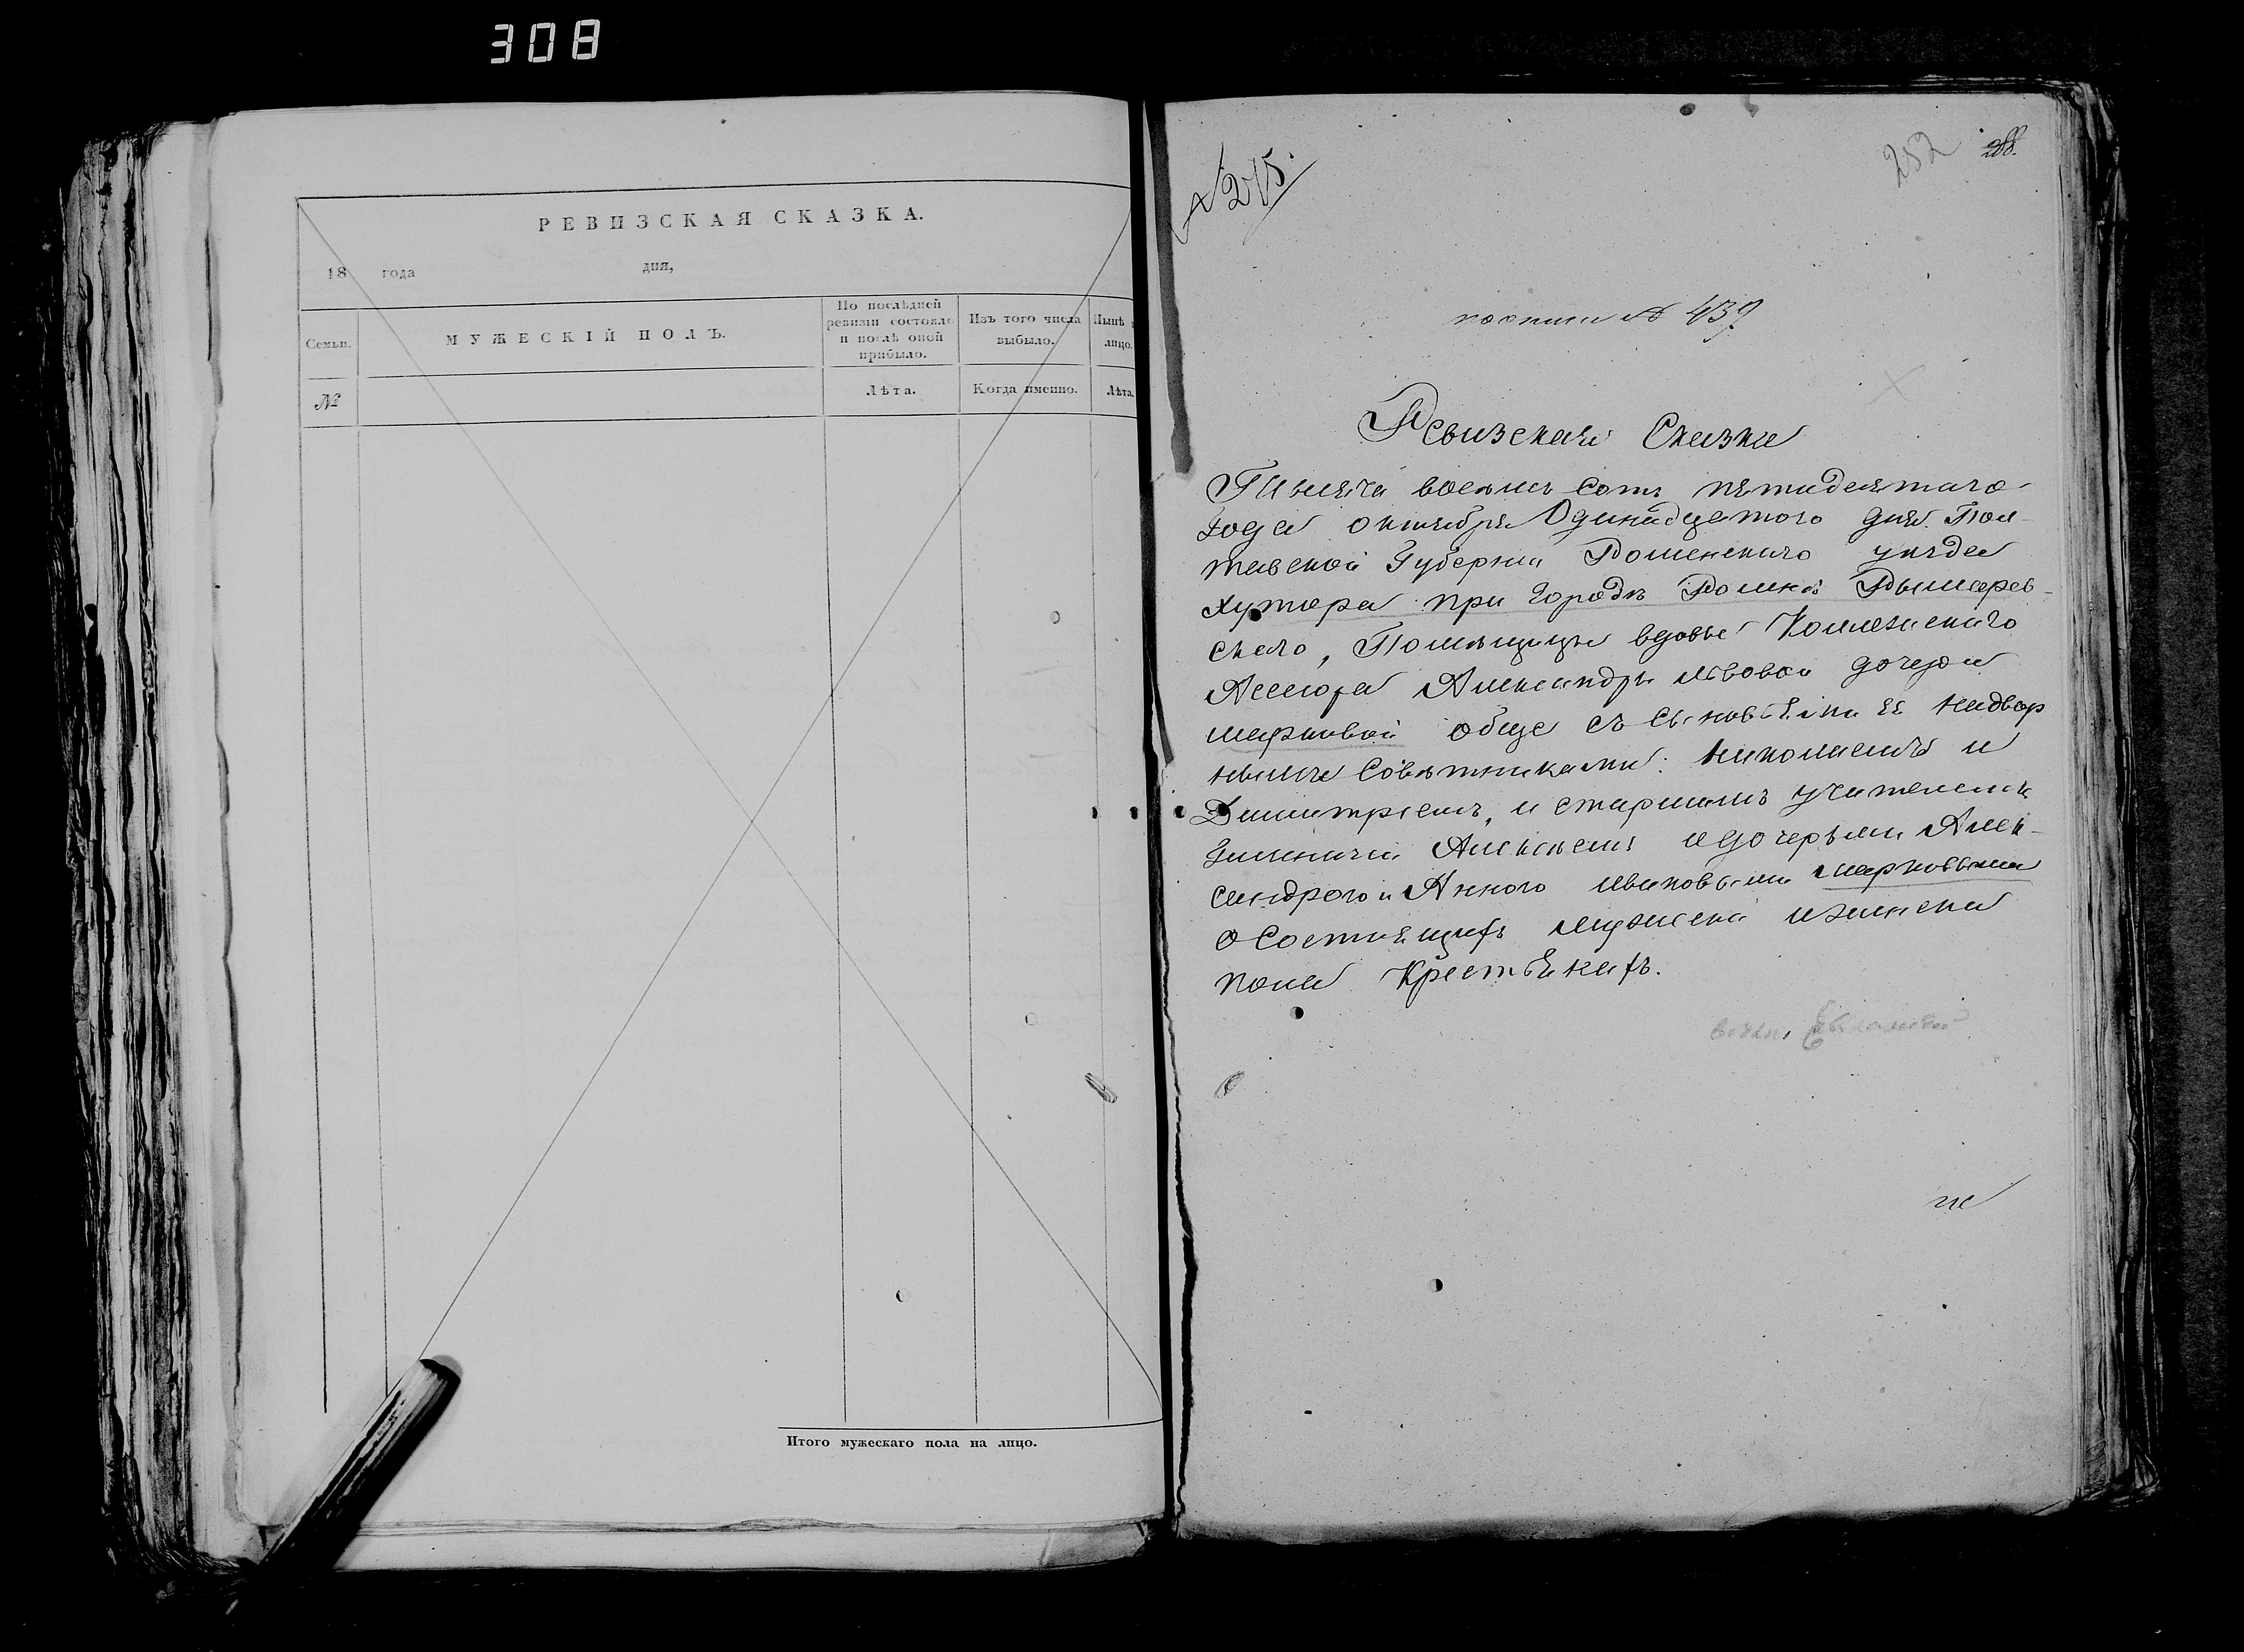 308
РЕВИЗСКАЯ СКАЗКА.
18 года дня,
Семьи.
МУЖЕСКІЙ ПОЛЪ.
По послѣдней ревизіи состояло и послѣ оной прибыло.
Изъ того числа выбыло.
Нынѣ лицо.
№
Лѣта.
Когда именно.
Лѣта.
Итого мужескаго пола на лицо.
№ 275.
252
по описи № 439
Ревизская Сказка
Тысяча восемь сотъ пятидесятаго
года октября Одинадцатого дня Пол-
тавской Губерніи Роменского уѣзда
Хутора при городѣ Ромнѣ Рымарев-
ского, Помѣщицы вдовы Коллежскаго
Асесора Александры Львовой дочери
Марковой обще съ сыновьями ее Надвор
ными Совѣтниками: Николаемъ и
Димитріемъ, и старшимъ учителемъ
Гимназіи Алексѣемъ и дочерьми Алек-
сандрою и Анною Ивановыми Марковыми
О Состоящихъ мужеска и женска
пола Крестьянахъ.